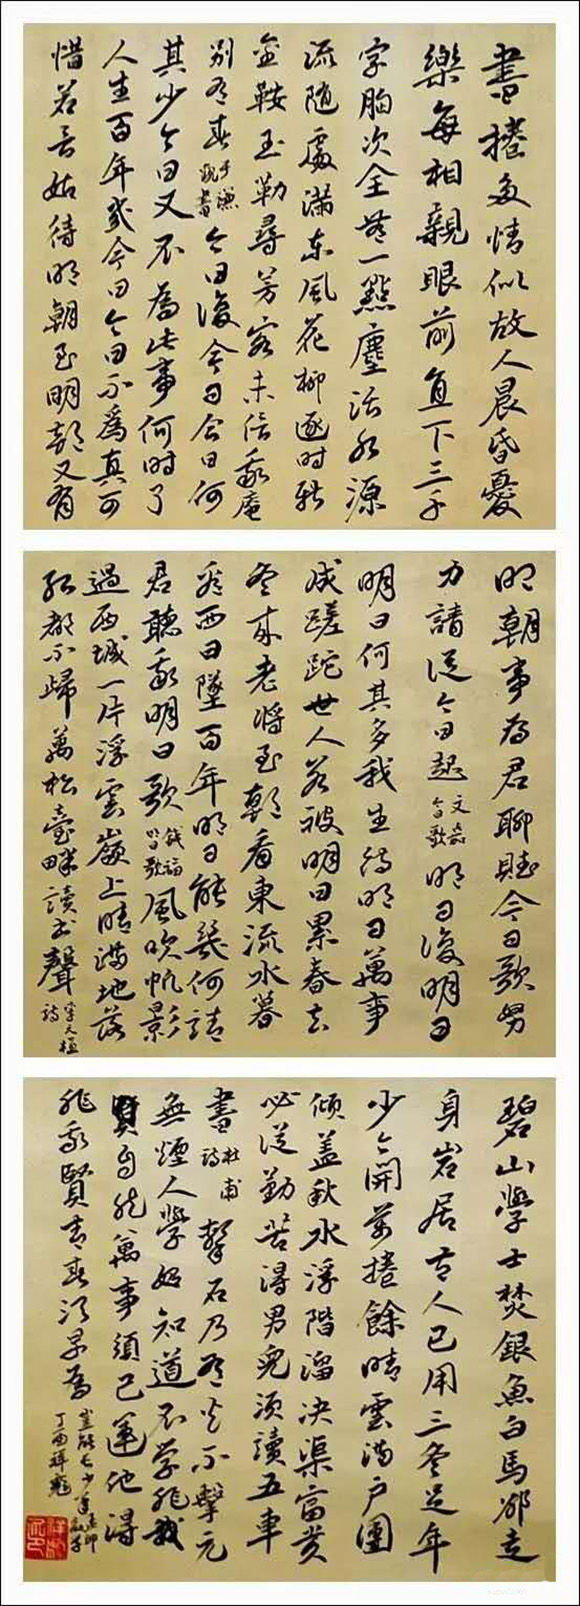 書捲多情似故人晨昏憂
樂每相親眼前直下三千
字胸次全無一點塵活水源
流隨處滿東風花柳逐時新
金鞍玉勒尋芳客未信我廬
別有春于謙觀書今日復今日今日何
其少今日又不為此事何時了
人生百年幾今日今日不為真可
惜若言姑待明朝至明朝又有
明朝事為君聊賦今日歌努
力請從今日起文嘉今日歌明日復明日
明日何其多我生待明日萬事
成蹉跎世人若被明日累春去
冬來老將至朝看東流水暮
看西日墜百年明日能幾何請
君聽我明日歌錢福明日歌風吹帆影
過西城一片浮雲嶺上晴滿地落
紅都不歸萬松臺畔讀書聲李天植詩
碧山學士焚銀魚白馬卻走
身岩居古人已用三冬足年
少今開萬捲餘晴雲滿戶團
傾蓋秋水浮階溜決渠富貴
必從勤苦得男兒須讀五車
書杜甫詩擊石乃有火不擊元
無煙人學始知道不學非我
賢自然萬事須己運他得
非我賢青春須早為豈能長少年孟郊勸學
丁酉